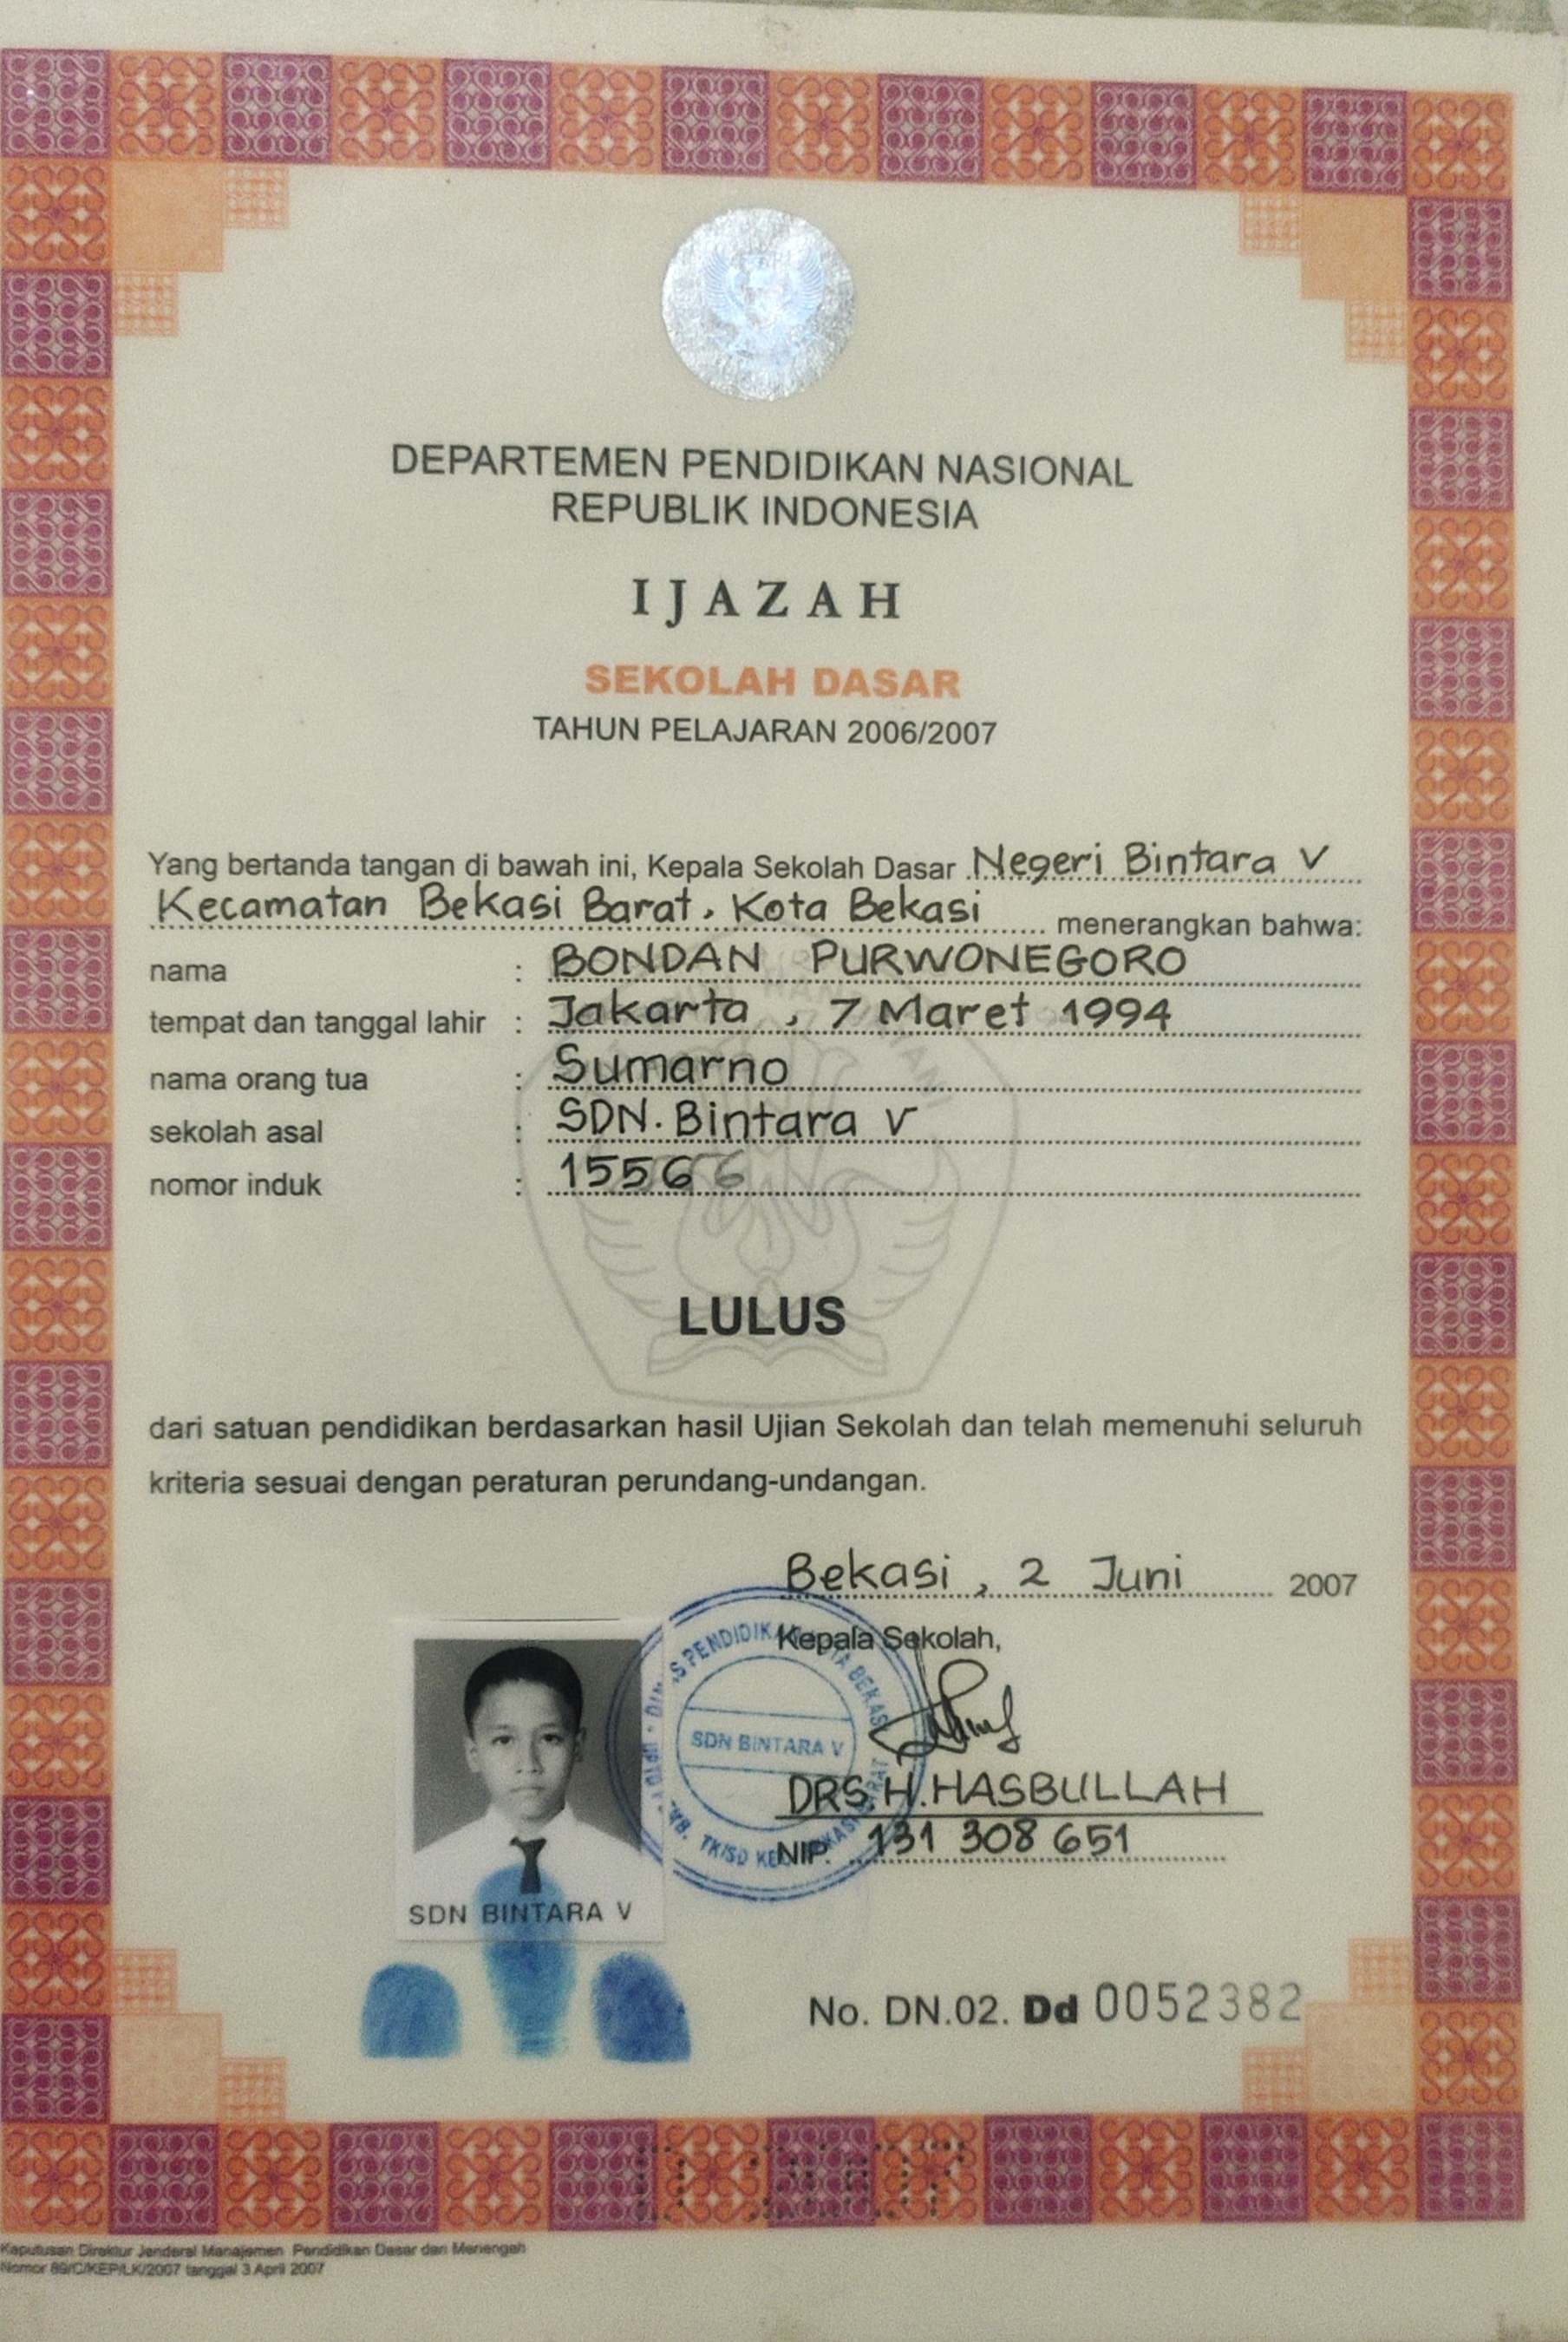 DEPARTEMEN PENDIDIKAN NASIONAL
REPUBLIK INDONESIA
IJAZAH
SEKOLAH DASAR
TAHUN PELAJARAN 2006/2007
Yang bertanda tangan di bawah ini, Kepala Sekolah Dasar Negeri Bintara V
Kecamatan Bekasi Barat, Kota Bekasi menerangkan bahwa:
nama : BONDAN PURWONEGORO
tempat dan tanggal lahir : Jakarta, 7 Maret 1994
nama orang tua : Sumarno
sekolah asal : SDN. Bintara V
nomor induk : 15566
LULUS
dari satuan pendidikan berdasarkan hasil Ujian Sekolah dan telah memenuhi seluruh
kriteria sesuai dengan peraturan perundang-undangan.
Bekasi, 2 Juni 2007
Kepala Sekolah,
SDN BINTARA V
DRS.H.HASBULLAH
NIP. 131 308 651
SDN BINTARA V
No. DN.02. Dd 0052382
Keputusan Direktur Jenderal Manajemen Pendidikan Dasar dan Menengah
Nomor 89/C/KEP/LK/2007 tanggal 3 April 2007